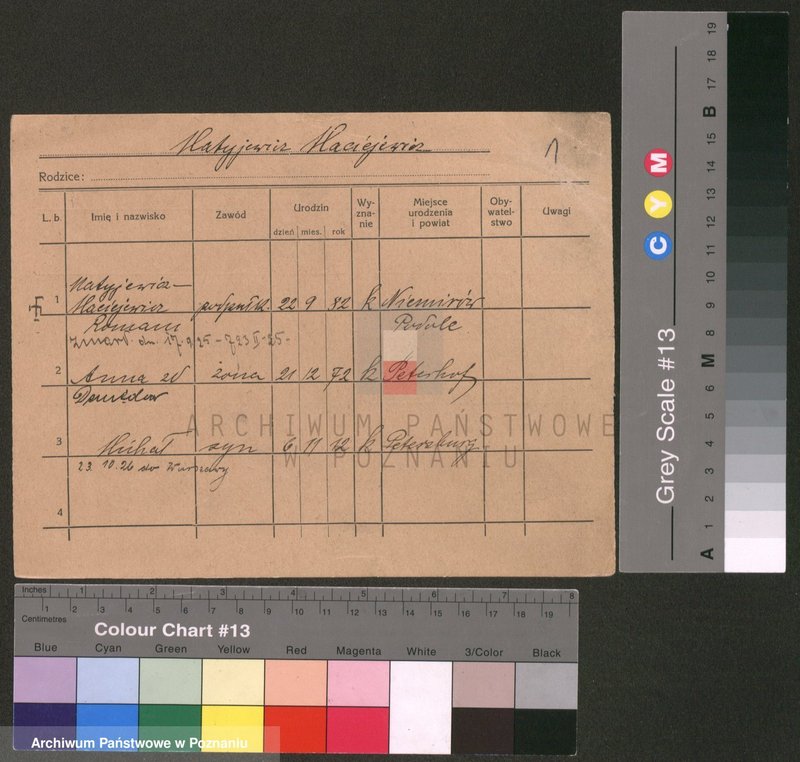 Matyjewicz Maciejewicz
1
Rodzice:
L. b. Imię i nazwisko Zawód Urodzin dzień mies. rok Wy-zna-nie Miejsce urodzenia i powiat Oby-watel-stwo Uwagi
1 Matyjewicz-
Maciejewicz podpułk. 22 9 82 k Niemirów
Romam Podole
zmarł dn. 17.9.25
2 Anna żona 21 12 72 k Peterhof
3 Michał syn 6 11 12 k Petersburg
23. 10. 26 do Warszawy
4
ARCHIWUM PAŃSTWOWE
W POZNANIU
Grey Scale #13
C Y M
A 1 2 3 4 5 6 M 8 9 10 11 12 13 14 15 B 17 18 19
Inches 1 2 3 4 5 6 7 8
Centimetres 1 2 3 4 5 6 7 8 9 10 11 12 13 14 15 16 17 18 19
Colour Chart #13
Blue Cyan Green Yellow Red Magenta White 3/Color Black
Archiwum Państwowe w Poznaniu